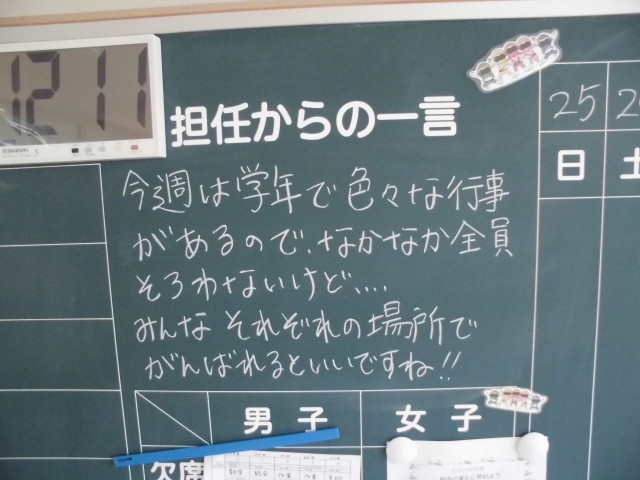 12 11
担任からの一言
25
日
土
今週は学年で色々な行事
があるので、なかなか全員
そろわないけど....
みんな それぞれの場所で
がんばれるといいですね!!
男子
女子
欠席